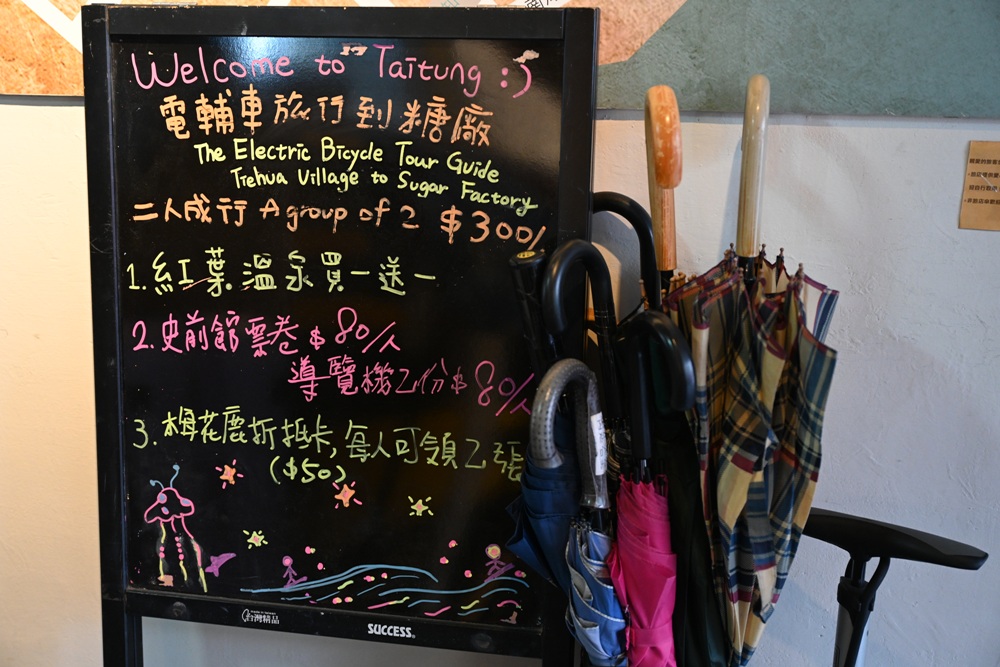 Welcome to Taitung :)
電輔車旅行到糖廠
The Electric Bicycle Tour Guide
Tiehua Village to Sugar Factory
二人成行 A group of 2 $300/
1. 紅葉溫泉買一送一
2. 史前館票卷$80/人
導覽機乙份$80/人
3. 梅花鹿折抵卡,每人可領乙張
($50)
台灣精品
SUCCESS